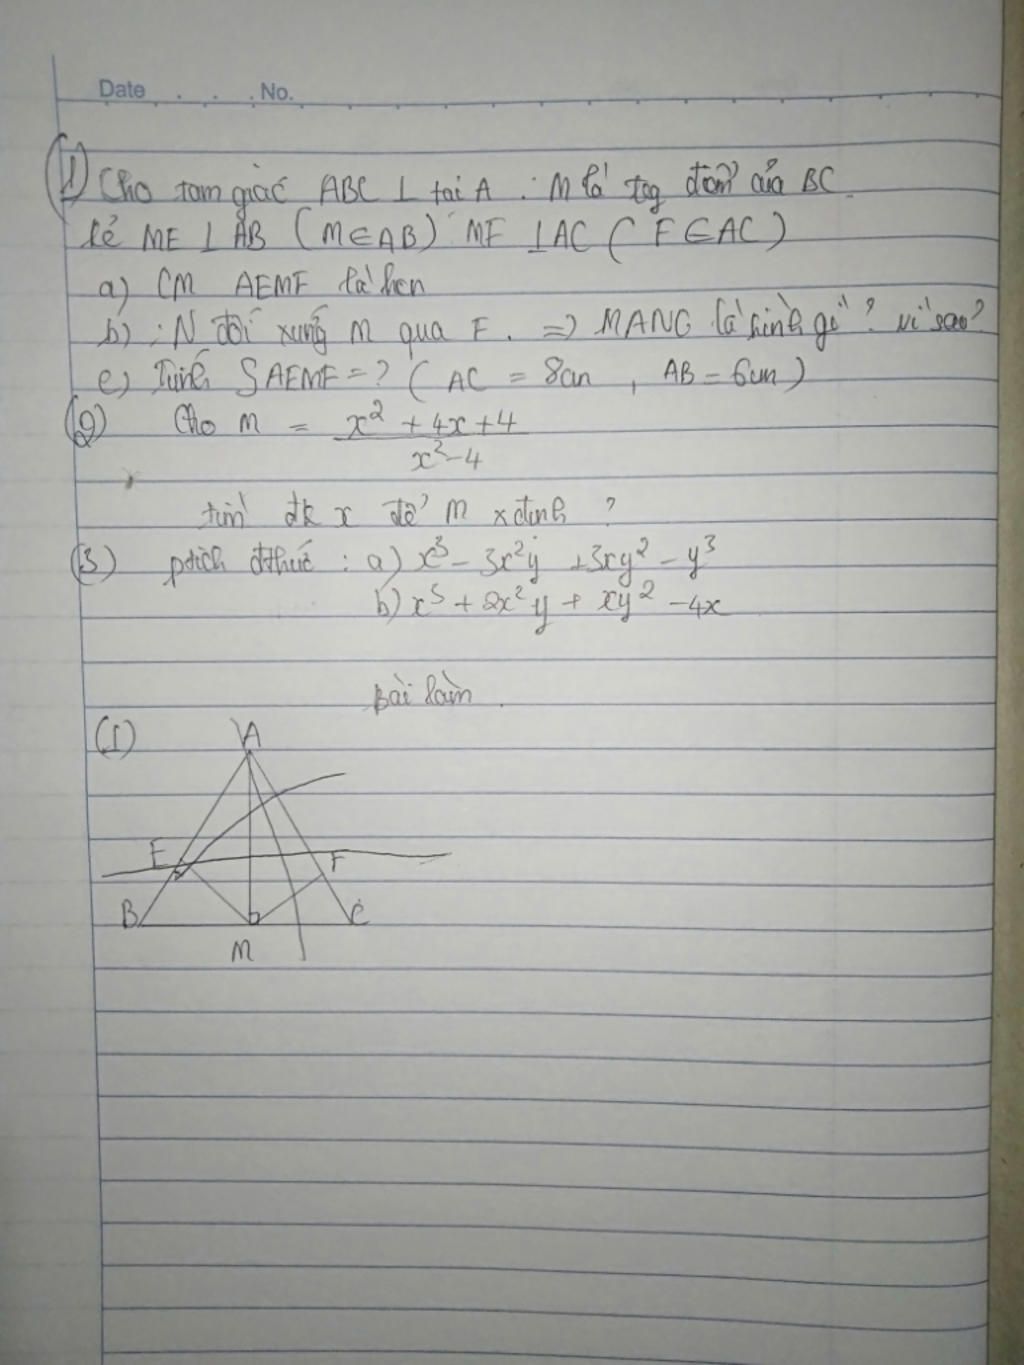 Date . . . No.
1) Cho tam giác ABC ⊥ tại A . M là tog điểm của BC
kẻ ME ⊥ AB (M∈AB) MF ⊥AC ( F∈AC)
a) CM AEMF là hcn
b) : N đối xứng M qua F. => MANC là hình gì ? vì sao?
c) Tính SAEMF = ? ( AC = 8cm , AB = 6cm )
(2) Cho M = x² + 4x + 4 / x² - 4
tìm đk x để M x định ?
(3) ptích đthức : a) x³ - 3x²y + 3xy² - y³
b) x³ + 2x²y + xy² - 4x
Bài làm .
(1)
A
E F
B C
M